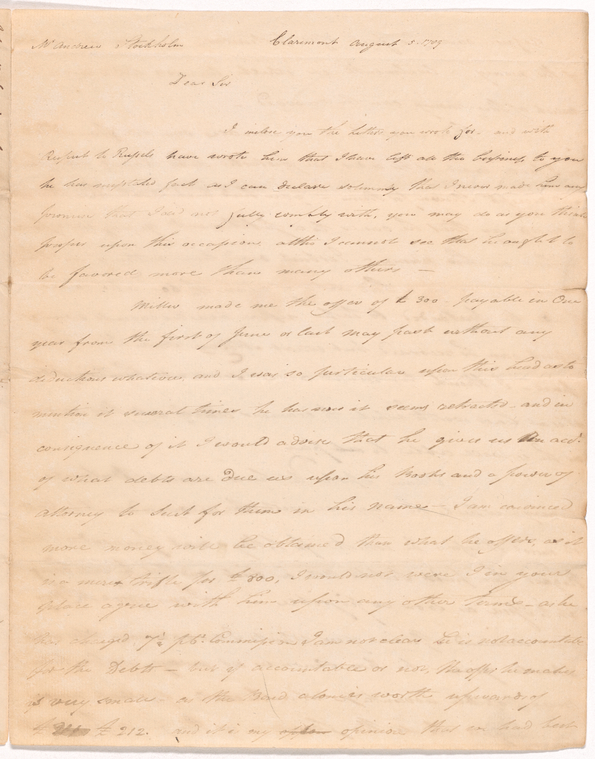 Mr Andrew Stockholm Claremont August 3. 1789
Dear Sir
I inclose you the letters you wrote for. and with
respect to Russels have wrote him that I have left all the business to you
he has the fact as I can declare solemnly that I never made him any
promise that I did not fully comply with, you may do as you think
proper upon this occasion, I cannot see that he ought to
be favored more than many others —
Miller made me the offer of £ 300 payable in One
year from the first of June or last May past without any
deductions whatever, and I was so particular upon this head as to
mention it several times he has now it seems retracted — and in
consequence of it I would advise that he gives us an acct.
of what debts are due us upon his Books and a power of
attorney to Suit for them in his name — I am convinced
more money will be obtained than what he offers, as it
is a mere trifle for £ 300, I would not were I in your
place agree with him upon any other terms — as he
has charged 7½ Commission I am not clear he is not accountable
for the Debts — but if accountable or not, the offer he makes
is very small — as the Bond alone is worth upwards of
£ 212. and it is my opinion that we had best